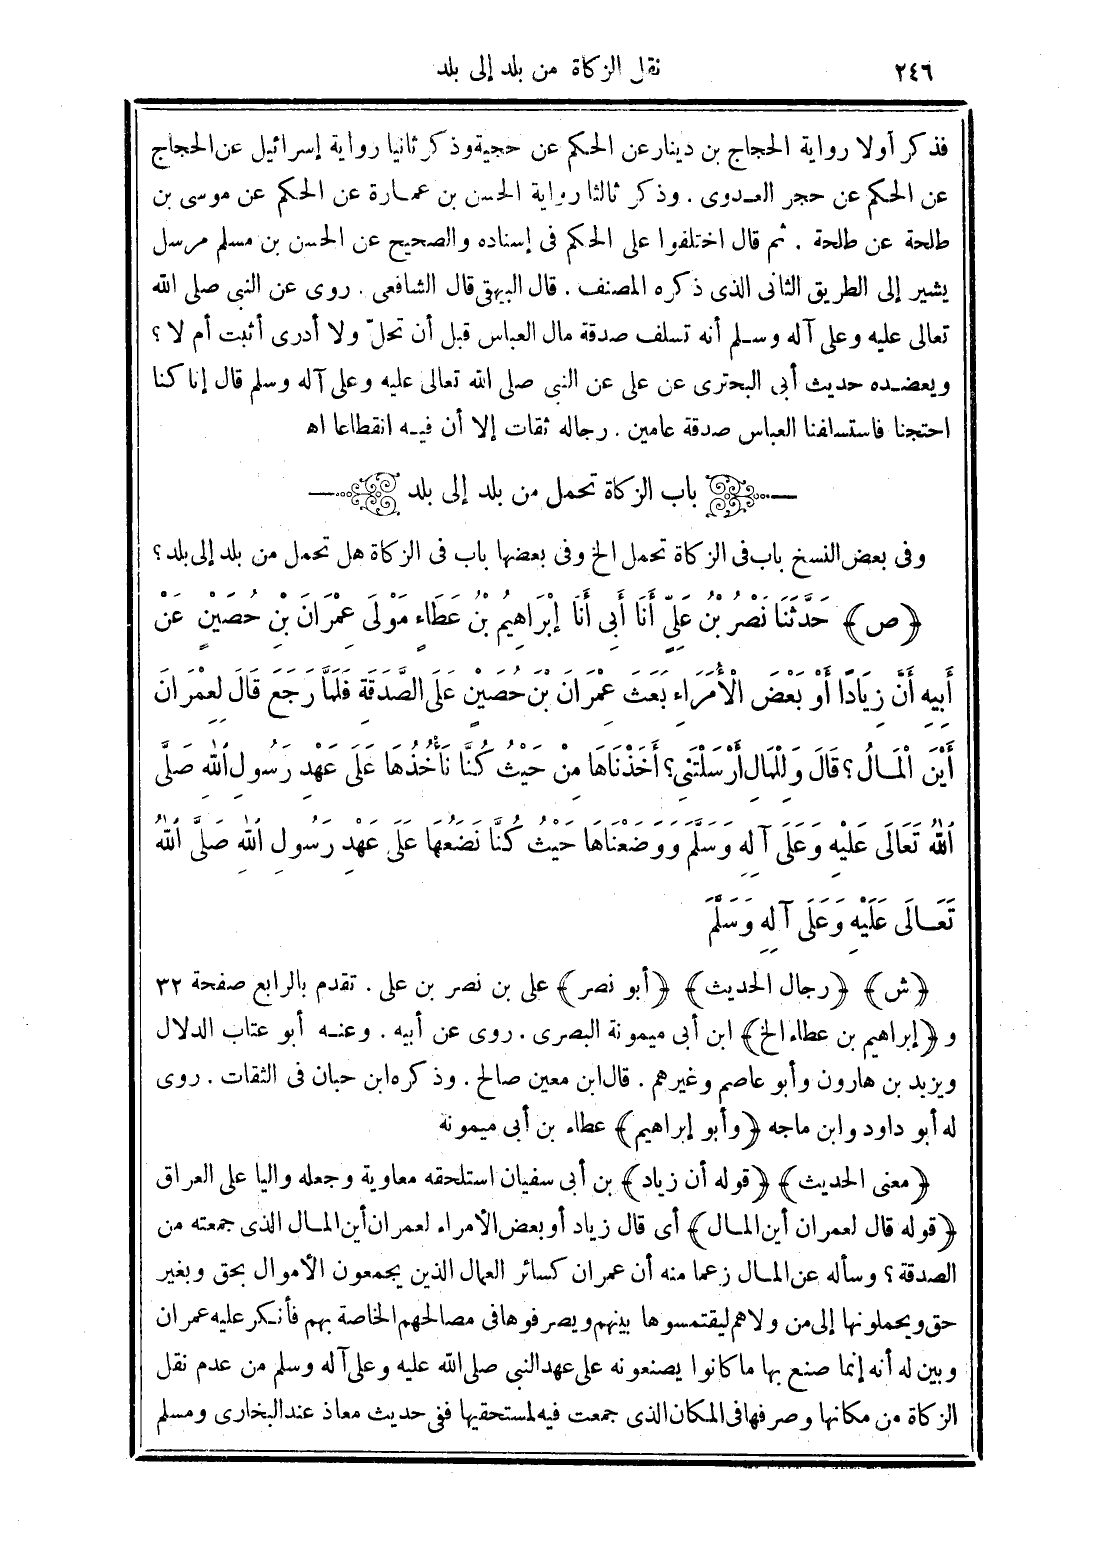 ٢٤٦ نقل الزكاة من بلد إلى بلد
فذكر أولا رواية الحجاج بن دينار عن الحكم عن حجية وذكر ثانيا رواية إسرائيل عن الحجاج
عن الحكم عن حجر العدوى . وذكر ثالثا رواية الحسن بن عمارة عن الحكم عن موسى بن
طلحة عن طلحة . ثم قال اختلفوا على الحكم فى إسناده والصحيح عن الحسن بن مسلم مرسل
يشير إلى الطريق الثانى الذى ذكره المصنف . قال البيهقى قال الشافعى . روى عن النبى صلى الله
تعالى عليه وعلى آله وسلم أنه تسلف صدقة مال العباس قبل أن تحلّ ولا أدرى أثبت أم لا ؟
ويعضده حديث أبى البحترى عن على عن النبى صلى الله تعالى عليه وعلى آله وسلم قال إنا كنا
احتجنا فاستسلفنا العباس صدقة عامين . رجاله ثقات إلا أن فيه انقطاعا اه
باب الزكاة تحمل من بلد إلى بلد
وفى بعض النسخ باب فى الزكاة تحمل الخ وفى بعضها باب فى الزكاة هل تحمل من بلد إلى بلد ؟
﴿ص﴾ حَدَّثَنَا نَصْرُ بْنُ عَلِيٍّ أَنَا أَبِى أَنَا إِبْرَاهِيمُ بْنُ عَطَاءٍ مَوْلَى عِمْرَانَ بْنِ حُصَيْنٍ عَنْ
أَبِيهِ أَنَّ زِيَادًا أَوْ بَعْضَ الْأُمَرَاءِ بَعَثَ عِمْرَانَ بْنَ حُصَيْنٍ عَلَى الصَّدَقَةِ فَلَمَّا رَجَعَ قَالَ لِعِمْرَانَ
أَيْنَ الْمَالُ ؟ قَالَ وَلِلْمَالِ أَرْسَلْتَنِى ؟ أَخَذْنَاهَا مِنْ حَيْثُ كُنَّا نَأْخُذُهَا عَلَى عَهْدِ رَسُولِ اللهِ صَلَّى
اللهُ تَعَالَى عَلَيْهِ وَعَلَى آلِهِ وَسَلَّمَ وَوَضَعْنَاهَا حَيْثُ كُنَّا نَضَعُهَا عَلَى عَهْدِ رَسُولِ اللهِ صَلَّى اللهُ
تَعَالَى عَلَيْهِ وَعَلَى آلِهِ وَسَلَّمَ
﴿ش﴾ ﴿رجال الحديث﴾ ﴿أبو نصر﴾ على بن نصر بن على . تقدم بالرابع صفحة ٣٢
و ﴿إبراهيم بن عطاء الخ﴾ ابن أبى ميمونة البصرى . روى عن أبيه . وعنه أبو عتاب الدلال
ويزيد بن هارون وأبو عاصم وغيرهم . قال ابن معين صالح . وذكره ابن حبان فى الثقات . روى
له أبو داود وابن ماجه ﴿وأبو إبراهيم﴾ عطاء بن أبى ميمونة
﴿معنى الحديث﴾ ﴿قوله أن زياد﴾ بن أبى سفيان استلحقه معاوية وجعله واليا على العراق
﴿قوله قال لعمران أين المال﴾ أى قال زياد أو بعض الأمراء لعمران أين المال الذى جمعته من
الصدقة ؟ وسأله عن المال زعما منه أن عمران كسائر العمال الذين يجمعون الأموال بحق وبغير
حق ويحملونها إلى من ولاهم ليقتسموها بينهم ويصرفوها فى مصالحهم الخاصة بهم فأنكر عليه عمران
وبين له أنه إنما صنع بها ما كانوا يصنعونه على عهد النبى صلى الله عليه وعلى آله وسلم من عدم نقل
الزكاة من مكانها وصرفها فى المكان الذى جمعت فيه لمستحقيها ففى حديث معاذ عند البخارى ومسلم